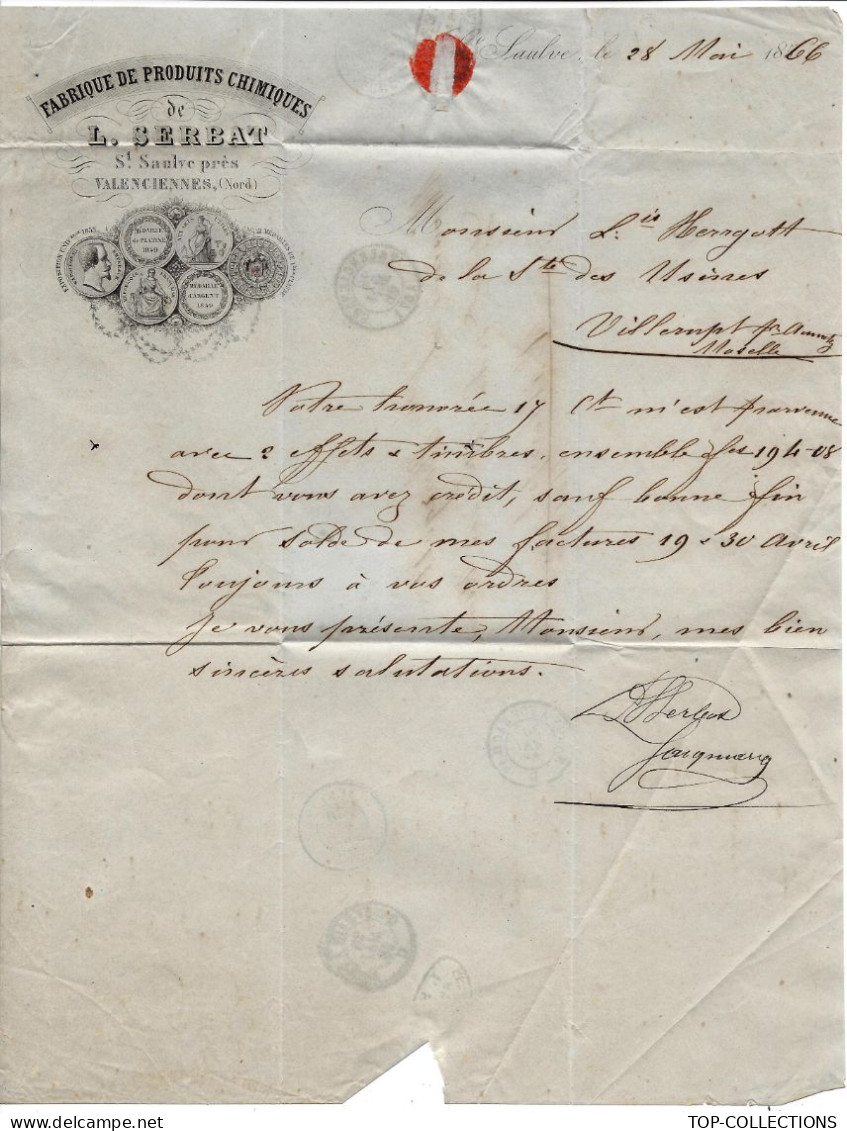 FABRIQUE DE PRODUITS CHIMIQUES
de
L. SERBAT
St Saulve près
VALENCIENNES, (Nord)
St Saulve, le 28 Mai 1866
EXPOSITION UNIVlle 1855
MÉDAILLE
de PLATINE
1849
MEDAILLE
D'ARGENT
1849
2 MÉDAILLES DE 1re CLASSE
Monsieur Lis Herrgott
de la Sté des Usines
Villerupt
Moselle
Votre honorée 17 Ct m'est parvenue
avec 2 effets & timbres, ensemble fcs 194-08
dont vous avez crédit, sauf bonne fin
pour solde de mes factures 19 & 30 Avril
Toujours à vos ordres
Je vous présente, Monsieur, mes bien
sincères salutations.
LSerbat
TOP-COLLECTIONS